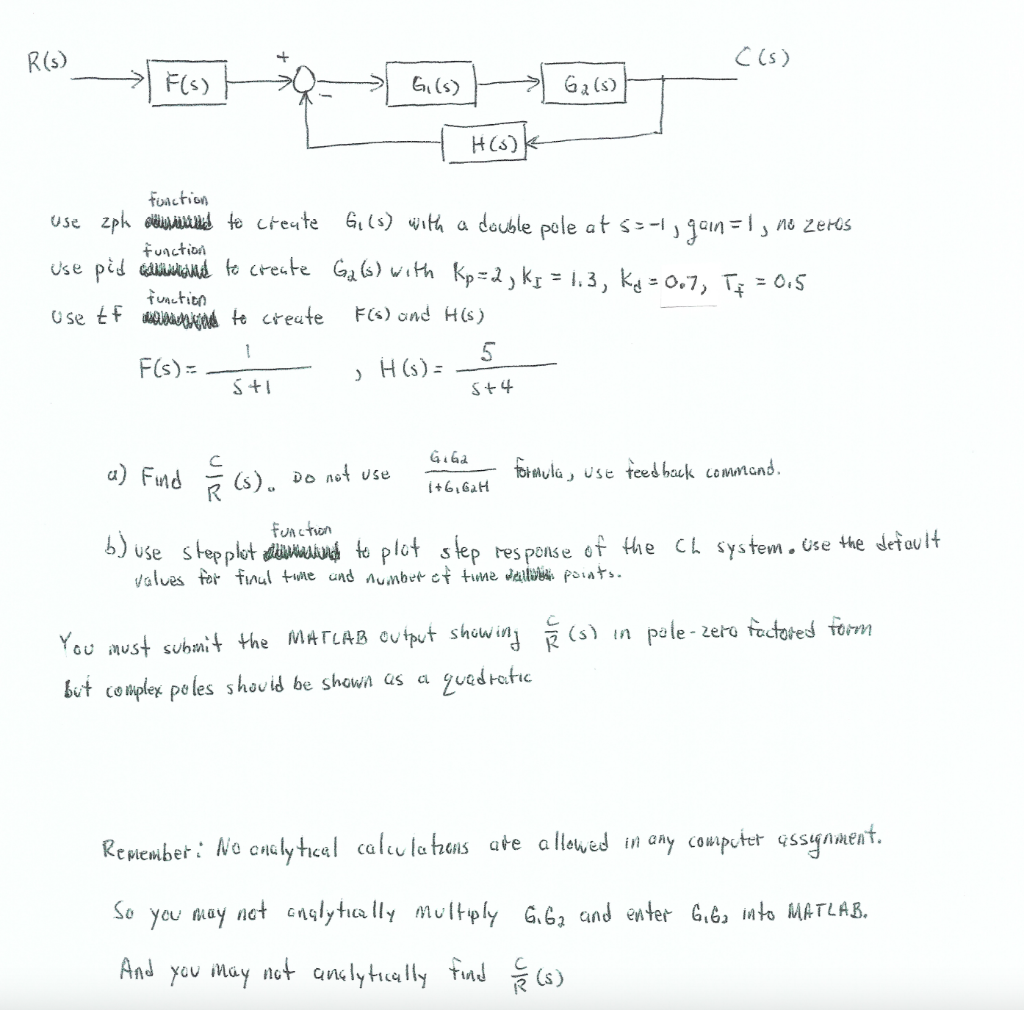 R(s)
F(s)
+
-
G₁(s)
G₂(s)
C(s)
H(s)
function
use zpk to create G₁(s) with a double pole at s=-1, gain=1, no zeros
function
Use pid to create G₂(s) with Kp=2, KI = 1.3, Kd = 0.7, Tf = 0.5
function
Use tf to create F(s) and H(s)
F(s) = 1/(s+1) , H(s) = 5/(s+4)
a) Find C/R (s). Do not use G₁G₂/(1+G₁G₂H) formula, use feedback command.
function
b) use stepplot to plot step response of the CL system. Use the default
values for final time and number of time points.
You must submit the MATLAB output showing C/R (s) in pole-zero factored form
but complex poles should be shown as a quadratic
Remember: No analytical calculations are allowed in any computer assignment.
So you may not analytically multiply G₁G₂ and enter G₁G₂ into MATLAB.
And you may not analytically find C/R (s)